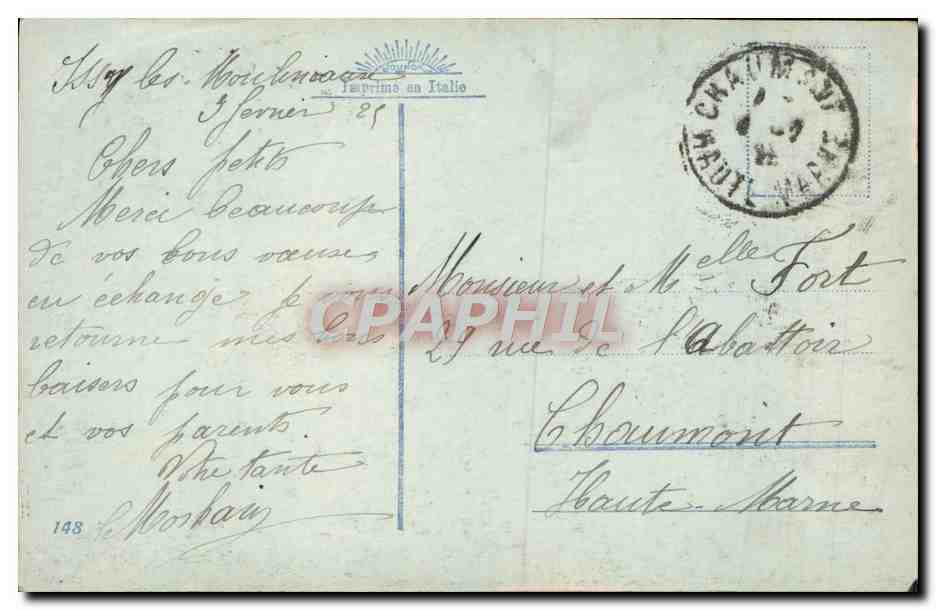 Issy les Moulineaux
3 fevrier 25
Chers petits
Merci beaucoup
de vos bons vœux
en échange je vous
retourne mes bons
baisers pour vous
et vos parents
Votre tante
148
Imprimé en Italie
CHAUMONT
HAUTE-MARNE
Monsieur et Melle Fort
29 rue de l'abattoir
Chaumont
Haute-Marne
CPAPHIL